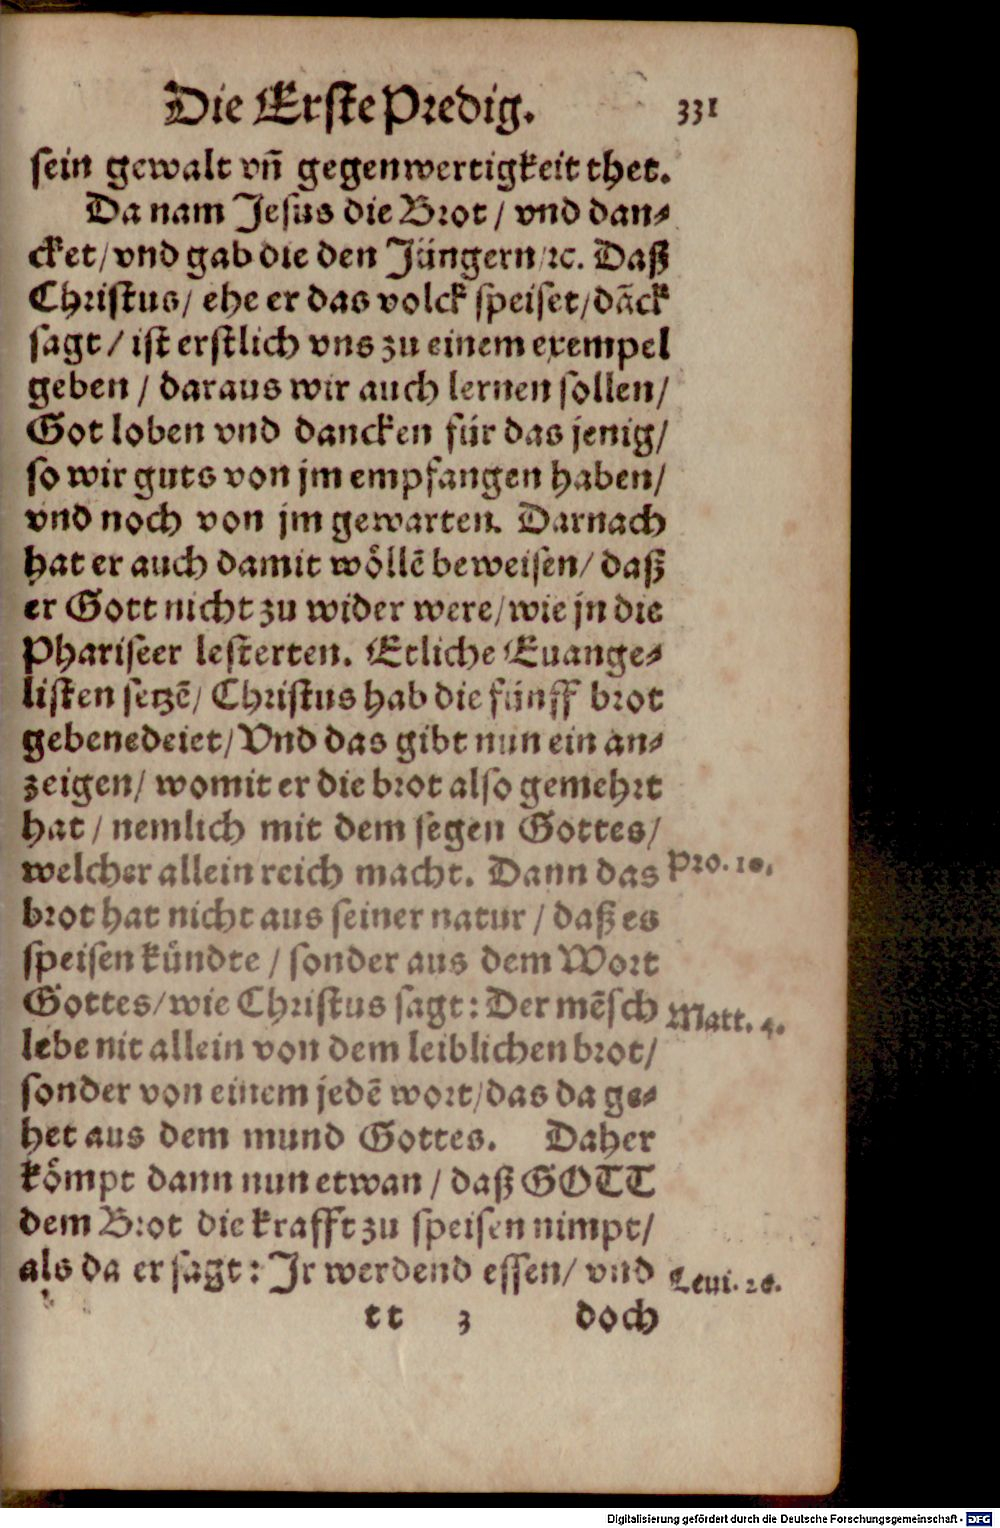 Die Erste Predig. 331
sein gewalt vñ gegenwertigkeit thet.
Da nam Jesus die Brot / vnd dan⸗
cket / vnd gab die den Jüngern / ꝛc. Daß
Christus / ehe er das volck speiset / dãck
sagt / ist erstlich vns zu einem exempel
geben / daraus wir auch lernen sollen /
Got loben vnd dancken für das jenig /
so wir guts von jm empfangen haben /
vnd noch von jm gewarten. Darnach
hat er auch damit wöllẽ beweisen / daß
er Gott nicht zu wider were / wie jn die
Phariseer lesterten. Etliche Euange⸗
listen setzẽ / Christus hab die fünff brot
gebenedeiet / Vnd das gibt nun ein an⸗
zeigen / womit er die brot also gemehrt
hat / nemlich mit dem segen Gottes /
welcher allein reich macht. Dann das
Pro. 10.
brot hat nicht aus seiner natur / daß es
speisen kündte / sonder aus dem Wort
Gottes / wie Christus sagt: Der mẽsch
Matt. 4.
lebe nit allein von dem leiblichen brot /
sonder von einem jedẽ wort / das da ge⸗
het aus dem mund Gottes. Daher
kömpt dann nun etwan / daß GOTT
dem Brot die krafft zu speisen nimpt /
als da er sagt: Jr werdend essen / vnd
Leui. 26.
tt 3 doch
Digitalisierung gefördert durch die Deutsche Forschungsgemeinschaft - DFG